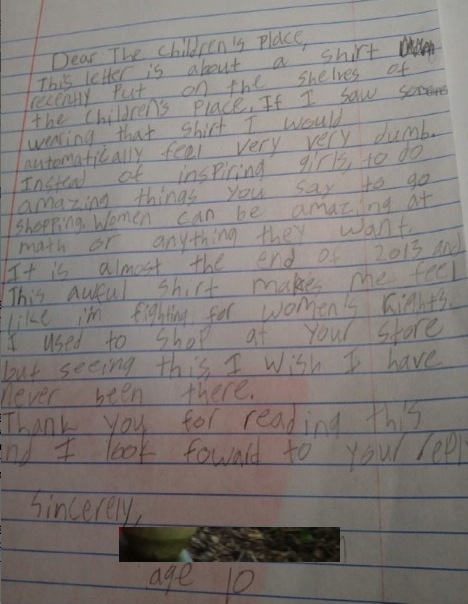 Dear The Children's Place,
This letter is about a shirt
recently Put on the shelves of
the children's Place. If I saw
wearing that shirt I would
automatically feel very very dumb.
Instead of inspiring girls, to do
amazing things you say to go
shopping. Women can be amazing at
math or anything they want.
It is almost the end of 2013 and
This awful shirt makes me feel
Like i'm fighting for women's Rights.
I used to shop at your store
but seeing this I wish I have
never been there.
Thank you for reading this
nd I look foward to your reply
Sincerely,
age 10